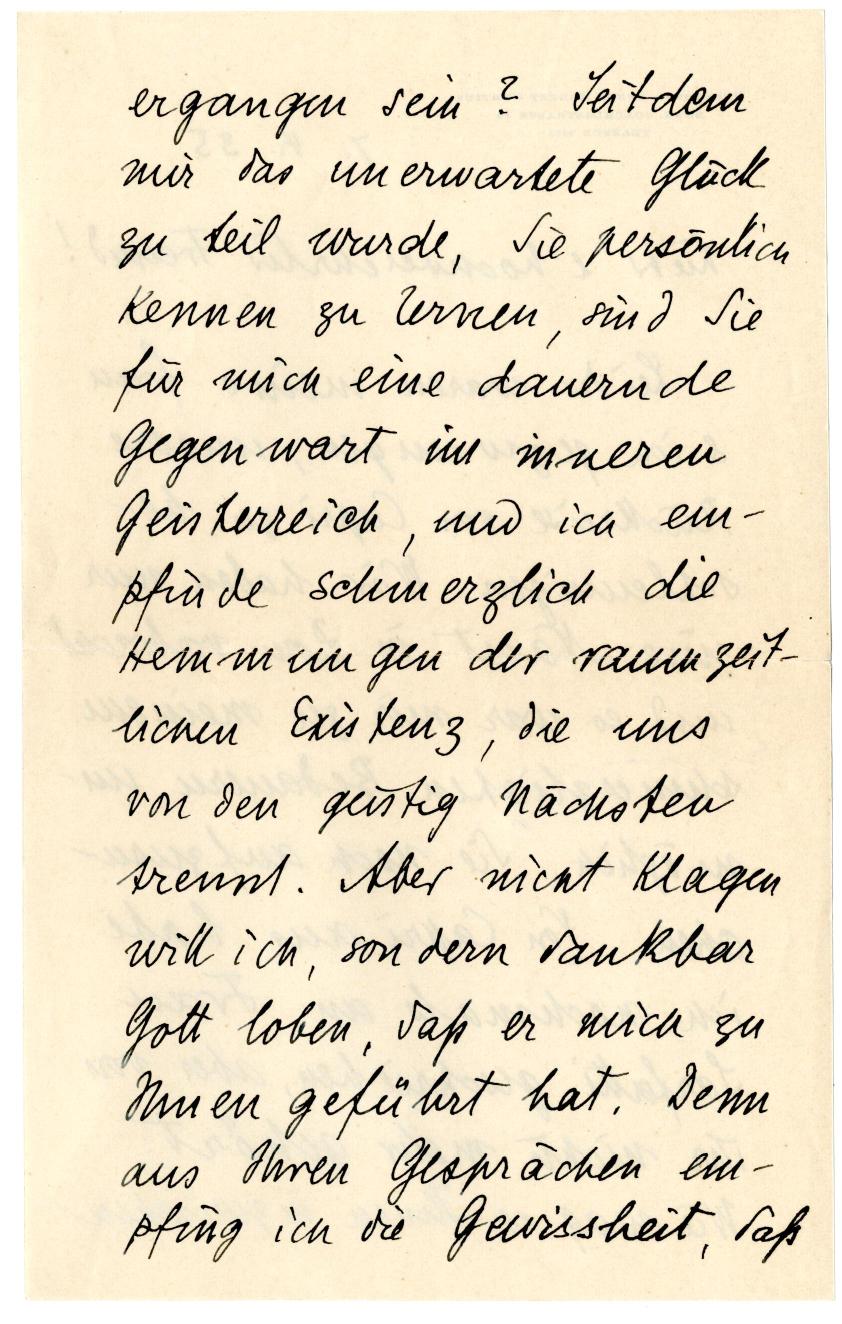 ergangen sein? Seitdem
mir das unerwartete Glück
zu teil wurde, Sie persönlich
kennen zu lernen, sind Sie
für mich eine dauernde
Gegenwart im inneren
Geisterreich, und ich em-
pfinde schmerzlich die
Hemmungen der raumzeit-
lichen Existenz, die uns
von den geistig Nächsten
trennt. Aber nicht klagen
will ich, sondern dankbar
Gott loben, daß er mich zu
Ihnen geführt hat. Denn
aus Ihren Gesprächen em-
pfing ich die Gewissheit, daß